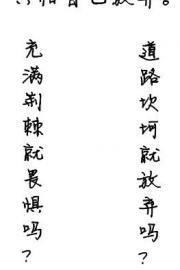 怕自己放弃。
道路坎坷就放弃吗？
充满荆棘就畏惧吗？